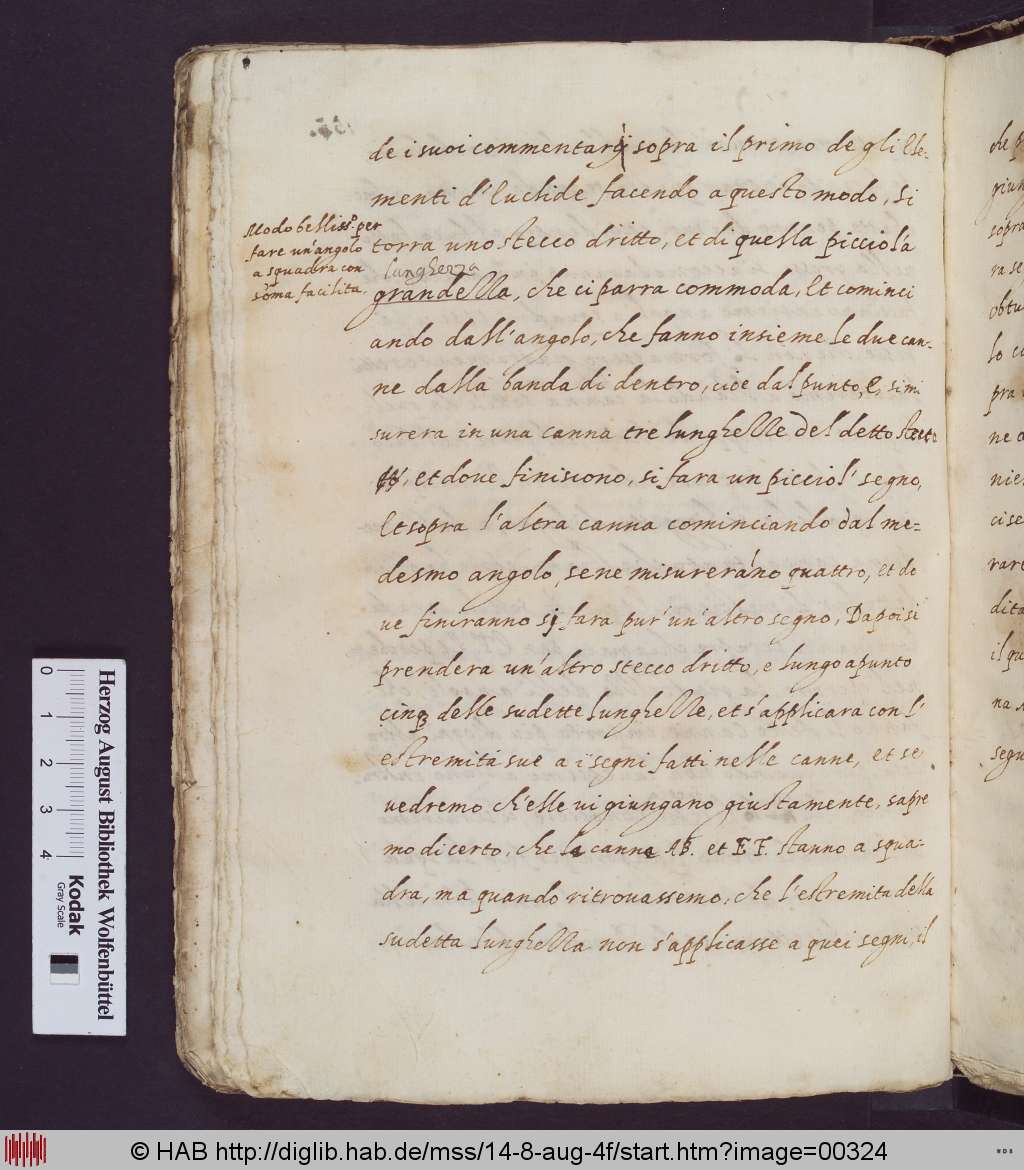 de i suoi commentarij sopra il primo de gli Ele-
menti d'Euclide facendo a questo modo, si
Modo belliss.º per
fare un'angolo
a squadra con
sōma facilita.
torra uno stecco dritto, et di quella picciola
lunghezza
grandella, che ci parra commoda, Et cominci
ando dall'angolo, che fanno insieme le due can-
ne dalla banda di dentro, cioe dal punto, E, si mi
surera in una canna tre lunghelle del detto stecco
, et dove finiscono, si fara un picciol' segno,
Et sopra l'altra canna cominciando dal me-
desmo angolo, se ne misureranno quattro, et do
ve finiranno si fara pur' un'altro segno, Dapoi si
prendera un'altro stecco dritto, e lungo apunto
cinq delle sudette lunghelle, et s'applicara con l'
estremitá sue a i segni fatti nelle canne, et se
vedremo ch'elle vi giungano giustamente, sapre
mo di certo, che le canne AB. et EF. stanno a squa-
dra, ma quando ritrovassemo, che l'estremita della
sudetta lunghella non s'applicasse a quei segni, il
de p
giun
sopra
ra se
obtu
lo co
pra
ne
nie
ci se
rare
dita
il qu
na
segu
Herzog August Bibliothek Wolfenbüttel
0 1 2 3 4
Kodak
Gray Scale
© HAB http://diglib.hab.de/mss/14-8-aug-4f/start.htm?image=00324
WDB